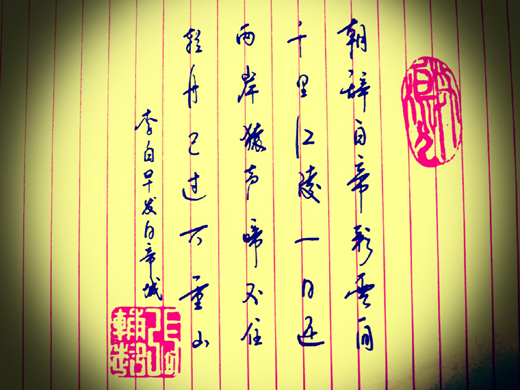 朝辞白帝彩雲间
千里江陵一日还
两岸猿声啼不住
轻舟已过万重山
李白早发白帝城